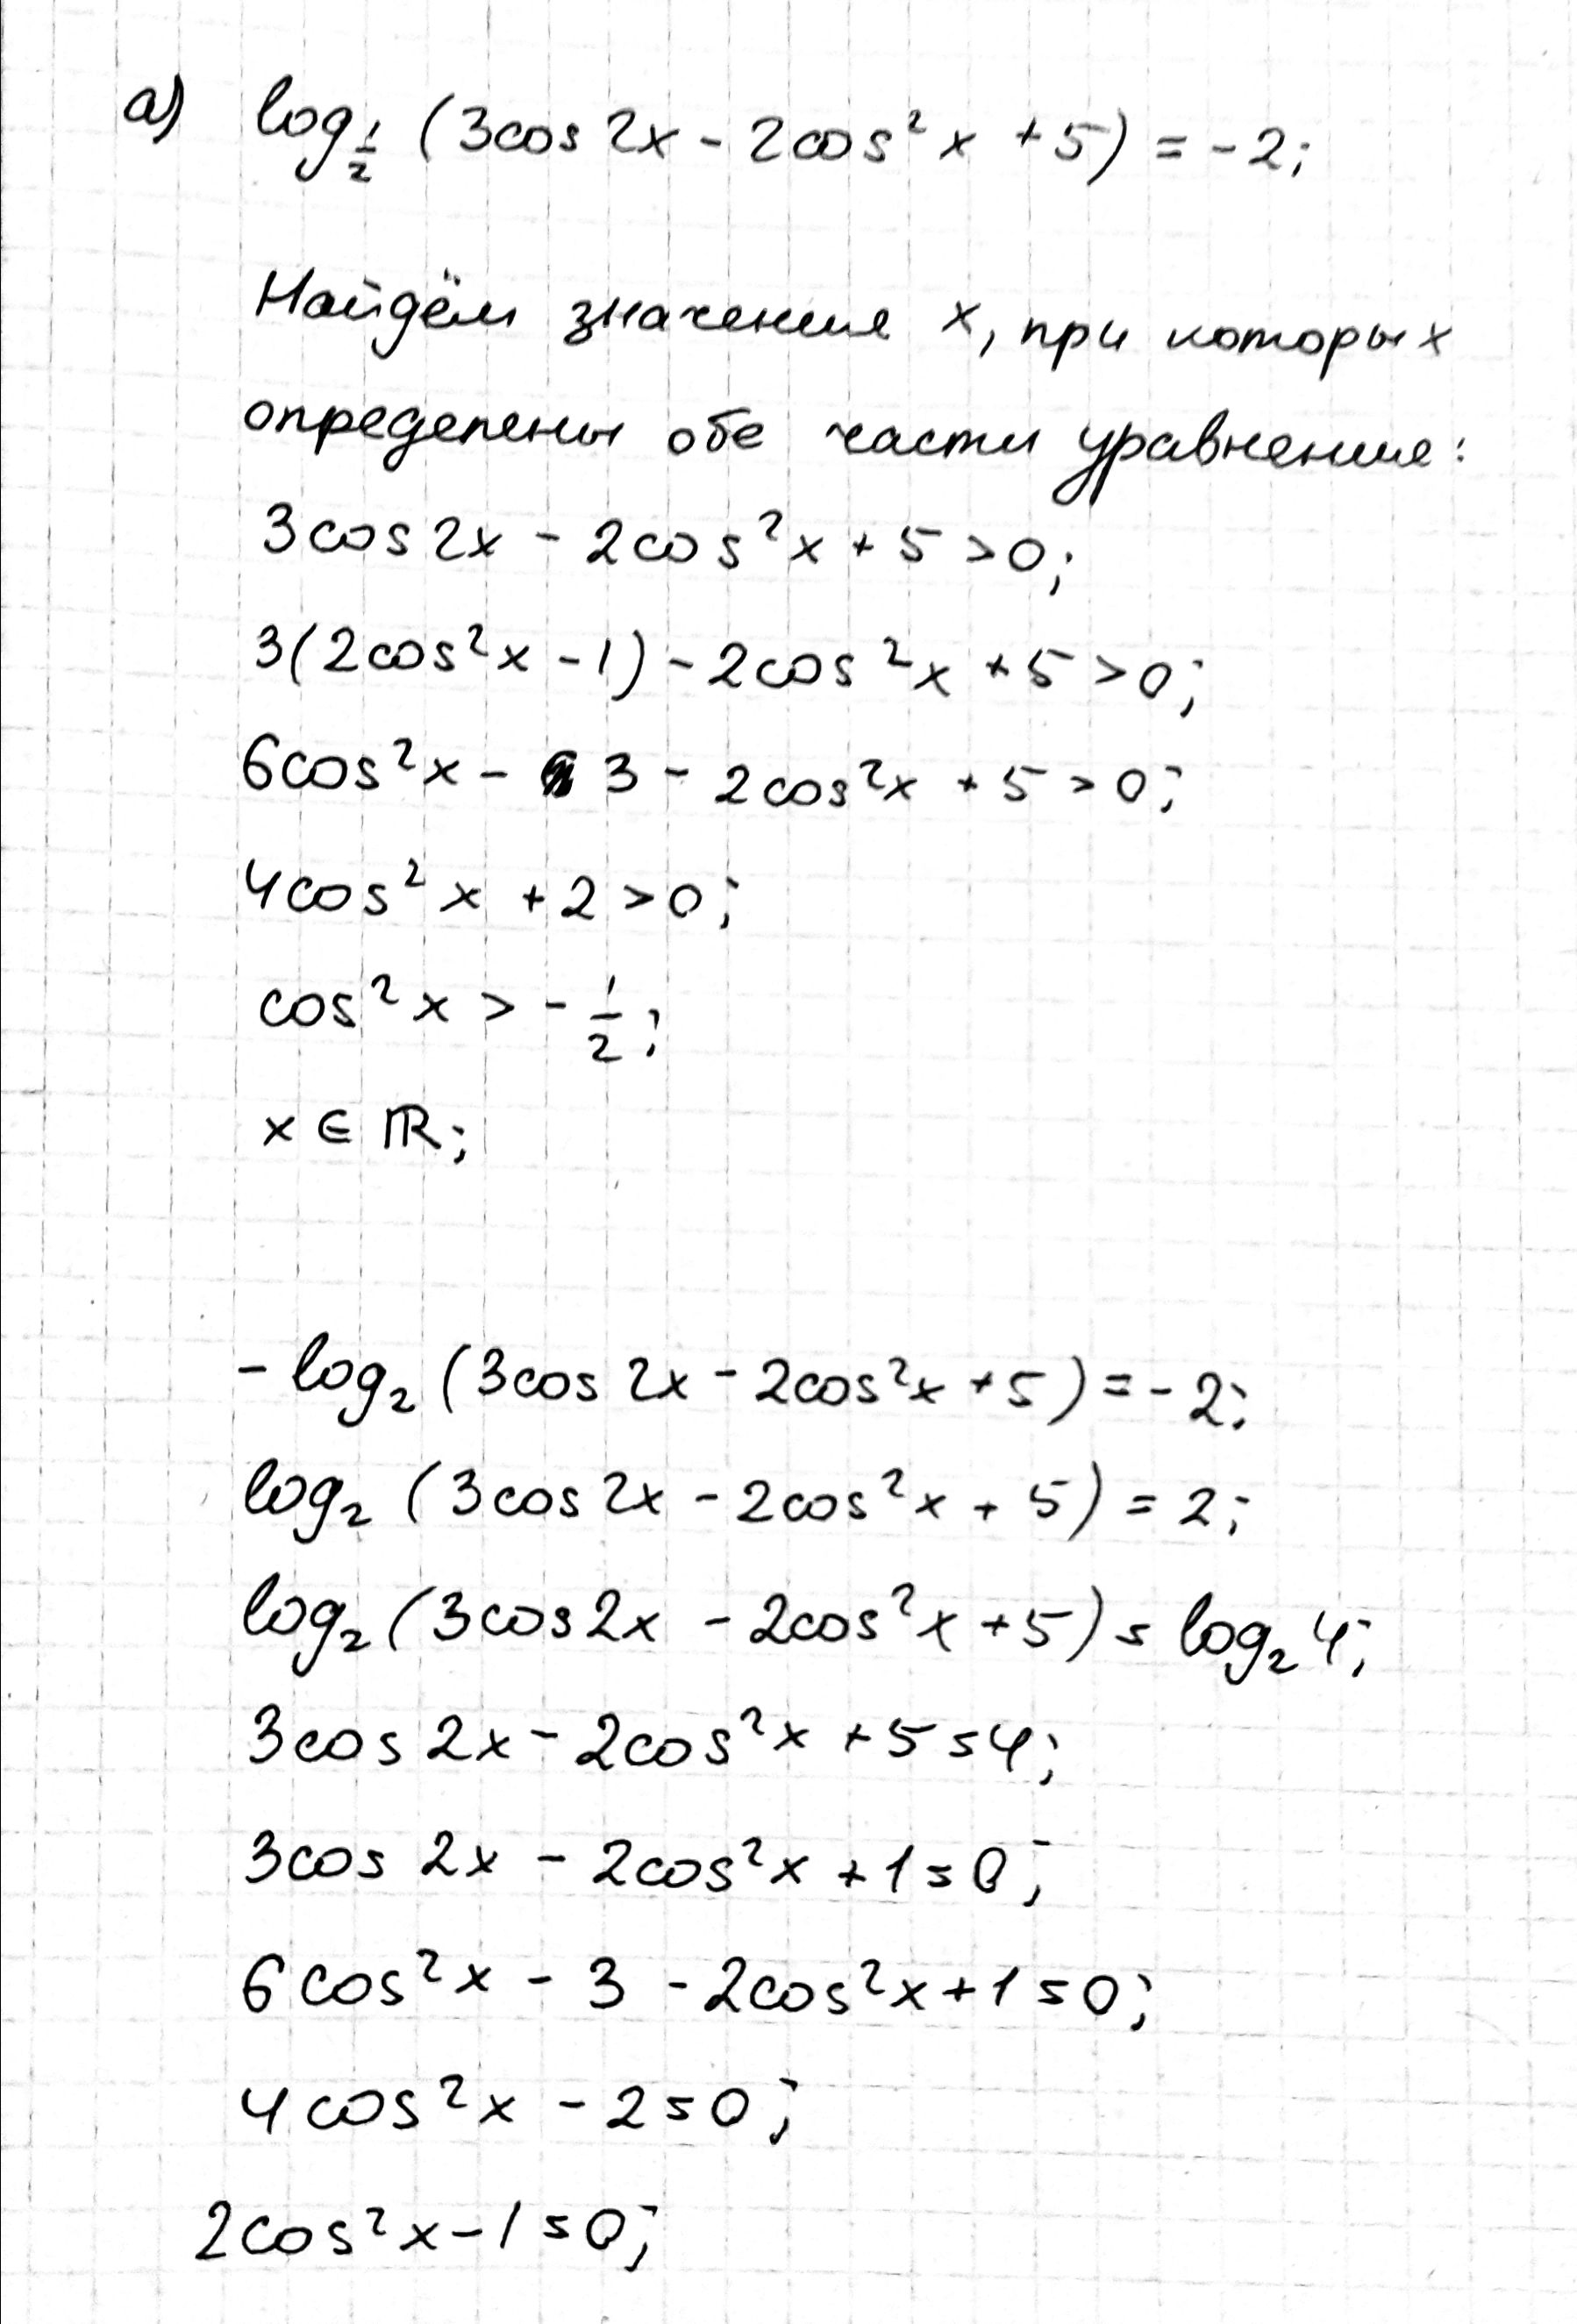 а) log_{1/2} (3cos 2x - 2cos²x + 5) = -2;
Найдём значения x, при которых
определены обе части уравнения:
3cos 2x - 2cos²x + 5 > 0;
3(2cos²x - 1) - 2cos²x + 5 > 0;
6cos²x - 3 - 2cos²x + 5 > 0;
4cos²x + 2 > 0;
cos²x > -1/2;
x ∈ ℝ;
-log₂ (3cos 2x - 2cos²x + 5) = -2;
log₂ (3cos 2x - 2cos²x + 5) = 2;
log₂ (3cos 2x - 2cos²x + 5) = log₂ 4;
3cos 2x - 2cos²x + 5 = 4;
3cos 2x - 2cos²x + 1 = 0;
6cos²x - 3 - 2cos²x + 1 = 0;
4cos²x - 2 = 0;
2cos²x - 1 = 0;